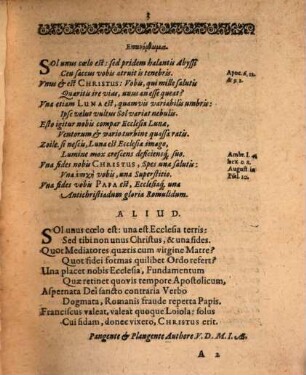 3
Sol unus cœlo est: sed pridem halantis Abyssi
Ceu saccus vobis atruit is tenebris.
Unus & est CHRISTUS: Vobis, qui mille salutis
Quæritis ire vias, unus an esse queat?
Una etiam LUNA est, quamvis variabilis umbris:
Ips' velut vultus Sol variat nebulis.
Esto igitur nobis compar Ecclesia Lunæ,
Ventorum & vario turbine quassa ratis.
Zoile, si nescis, Luna est Ecclesiæ imago,
Lumine mox crescens deficiensq́, suo.
Una fides nobis CHRISTUS, Spes una salutis:
Una vobis, una Superstitio.
Una fides vobis PAPA est, Ecclesiaq́, una
Antichristiadum gloria Romulidum.
Apoc. 6. 12.
& 9. 2.
Ambr. l. 4.
hex. c. 2.
August. in
Psal. 10.
ALIUD.
SOl unus cœlo est: una est Ecclesia terris:
Sed tibi non unus Christus, & una fides.
Quot Mediatores quæris cum virgine Matre?
Quot fidei formas quilibet Ordo refert?
Una placet nobis Ecclesia, Fundamentum
Quæ retinet quovis tempore Apostolicum,
Aspernata Dei sancto contraria Verbo
Dogmata, Romanis fraude reperta Papis.
Franciscus valeat, valeat quoque Loiola: solus
Cui fidam, donec vixero, CHRISTUS erit.
Pangente & Plaugente Authore V. D. M. I. A.
A 2